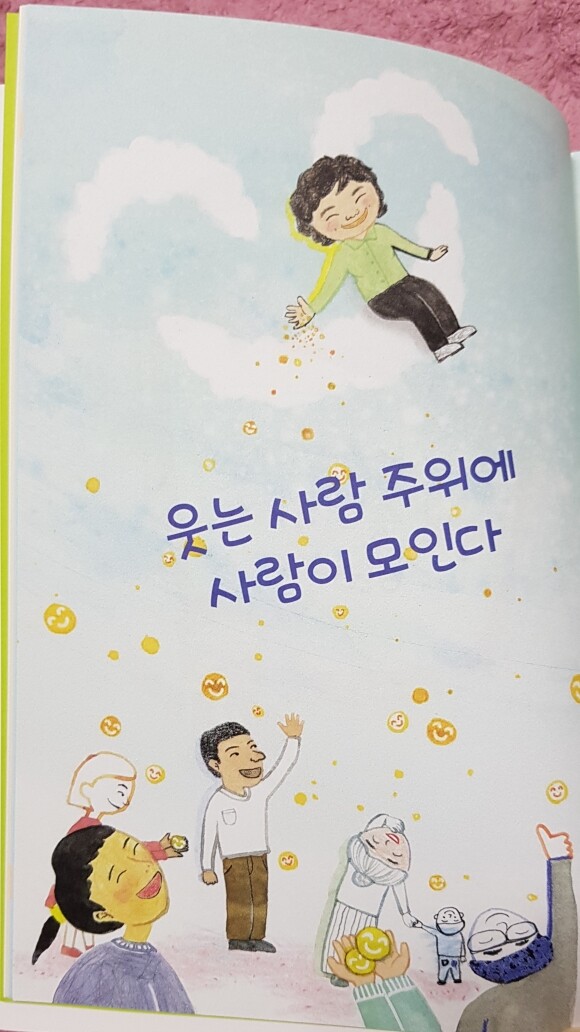 웃는 사람 주위에
사람이 모인다